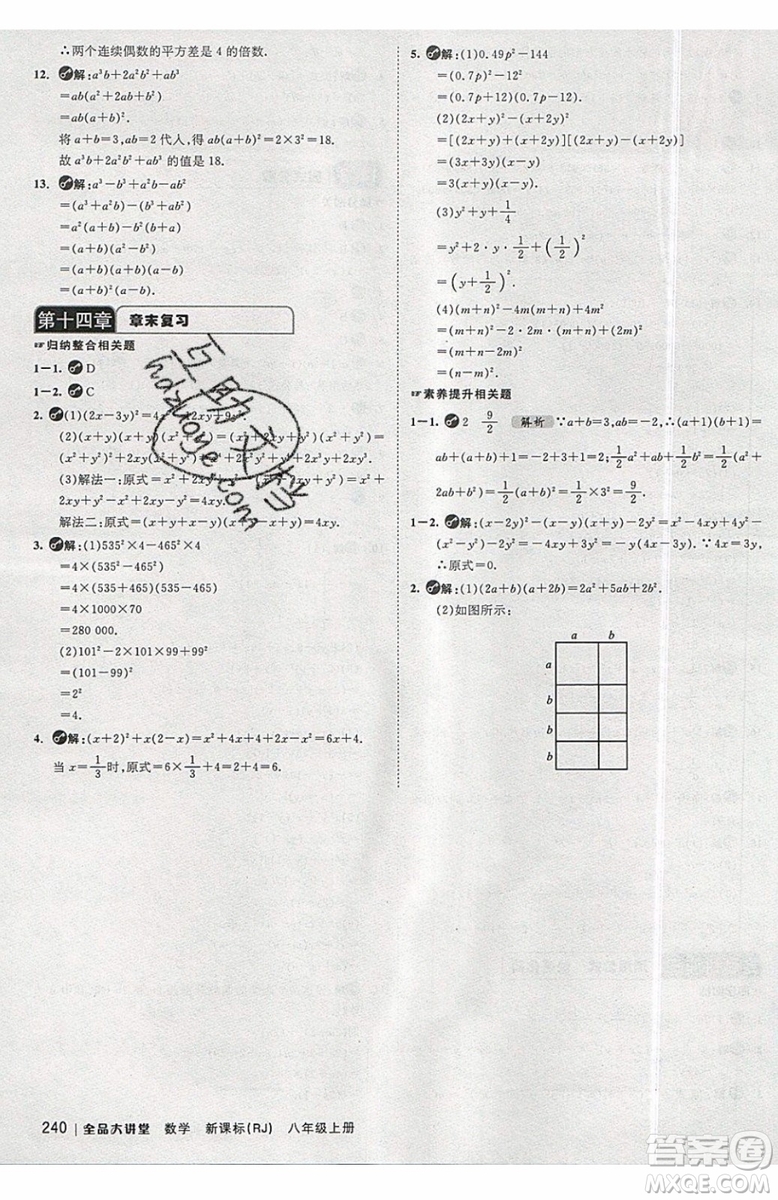 ∴两个连续偶数的平方差是 4 的倍数.
12. 解:a³b+2a²b²+ab³
=ab(a²+2ab+b²)
=ab(a+b)².
将 a+b=3,ab=2 代人,得 ab(a+b)²=2×3²=18.
故 a³b+2a²b²+ab³ 的值是 18.
13. 解:(a³+a²b)-(b³+ab²)
=(a³+a²b)-(b³+ab²)
=a²(a+b)-b²(a+b)
=(a+b)(a²-b²)
=(a+b)(a+b)(a-b)
=(a+b)²(a-b).
第十四章 章末复习
☞归纳整合相关题
1-1. D
1-2. C
2. (1)(2x-3y)²=4x²-12xy+9y²
(2)(x²+xy+y²)
2xy(x²+y²)
(3)解法一:原式=(x²+2xy+y²)-(x²-2xy+y²)=x²+
2xy+y²-x²+2xy-y²=4xy.
解法二:原式=(x+y+x-y)(x+y-x+y)=4xy.
3. 解:(1)535²×4-465²×4
=4×(535²-465²)
=4×(535+465)(535-465)
=4×1000×70
=280 000.
(2)101²-2×101×99+99²
=(101-99)²
=2²
=4.
4. 解:(x+2)²+x(2-x)=x²+4x+4+2x-x²=6x+4.
当 x=1/3时,原式=6×1/3+4=2+4=6.
5. 解:(1)0.49p²-144
=(0.7p)²-12²
=(0.7p+12)(0.7p-12).
(2)(2x+y)²-(x+2y)²
=[(2x+y)+(x+2y)][(2x+y)-(x+2y)]
=(3x+3y)(x-y)
=3(x+y)(x-y).
(3)y²+y+1/4
=y²+2·y·1/2+(1/2)²
=(y+1/2)².
(4)(m+n)²-4m(m+n)+4m²
=(m+n-2m)²
=(-m+n)²
=(m-n)².
☞素养提升相关题
1-1. 2 9/2 解析 ∵a+b=3,ab=-2,∴(a+1)(b+1)=
ab+(a+b)+1=-2+3+1=2,1/2a²+ab+1/2b²=
1/2(a²+2ab+b²)=1/2(a+b)²=1/2×3²=9/2.
1-2. 解:(x-2y)²-(x-y)(x+y)-5y²=x²-4xy+4y²-
(x²-y²)-5y²=-4xy. ∵xy=0,
∴原式=0.
2. 解:(1)(2a+b)(a+2b)=2a²+5ab+2b².
(2)如图所示:
a b
a
b
b
b
240 | 全品大讲堂 数学 新课标(RJ) 八年级上册
互助文档
hdzuone.com
答案圈
MXQE.COM